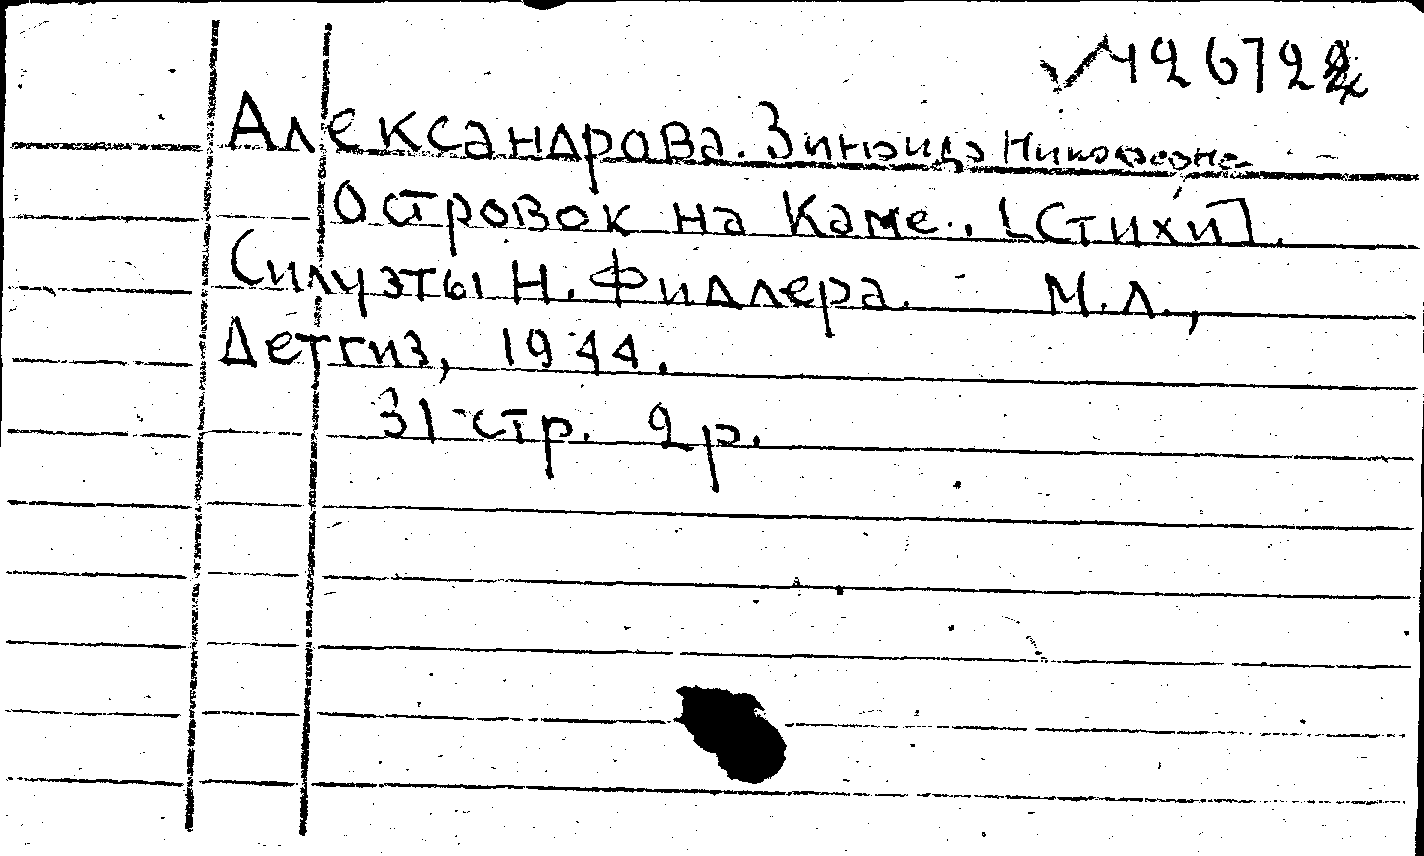 426722
Александрова. Зинаида Николаевна
Островок на Каме. [Стихи].
Силуэты Н. Фидлера. М.Л.,
Детгиз, 1944.
31 стр. 2 р.